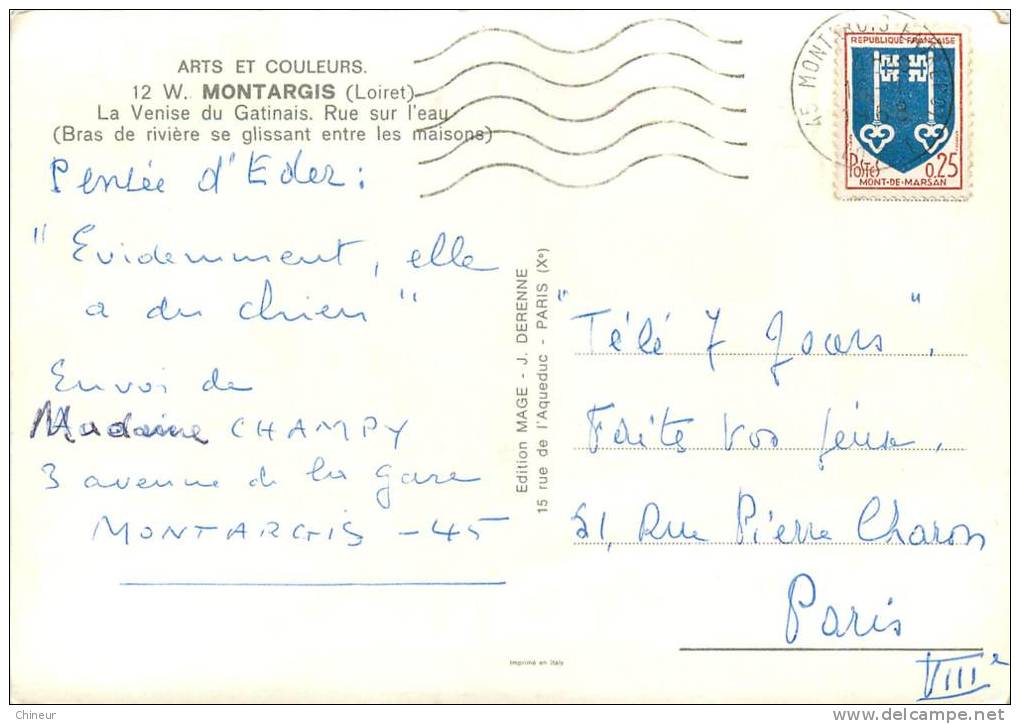 ARTS ET COULEURS.
12 W. MONTARGIS (Loiret)
La Venise du Gatinais. Rue sur l'eau
(Bras de rivière se glissant entre les maisons)
Pensée d'Eder :
"Evidemment, elle
a du chien"
Envoi de
Madame CHAMPY
3 avenue de la gare
MONTARGIS - 45
Edition MAGE - J. DERENNE
15 rue de l'Aqueduc - PARIS (Xe)
45 MONTARGIS
REPUBLIQUE FRANÇAISE
POSTES 0,25
MONT-DE-MARSAN
"Télé 7 Jours".
Faites vos jeux.
51, Rue Pierre Charon
Paris
VIIIe
Imprimé en Italy
Chineur
delcampe.net